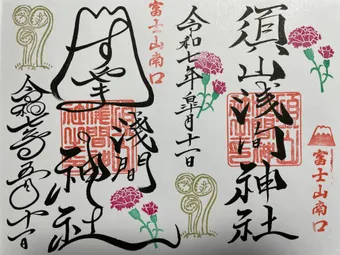 須山浅间神社
富士山南口
令和七年皐月十一日
富士山南口
すやま
浅间
神社
令和七年五月十一日